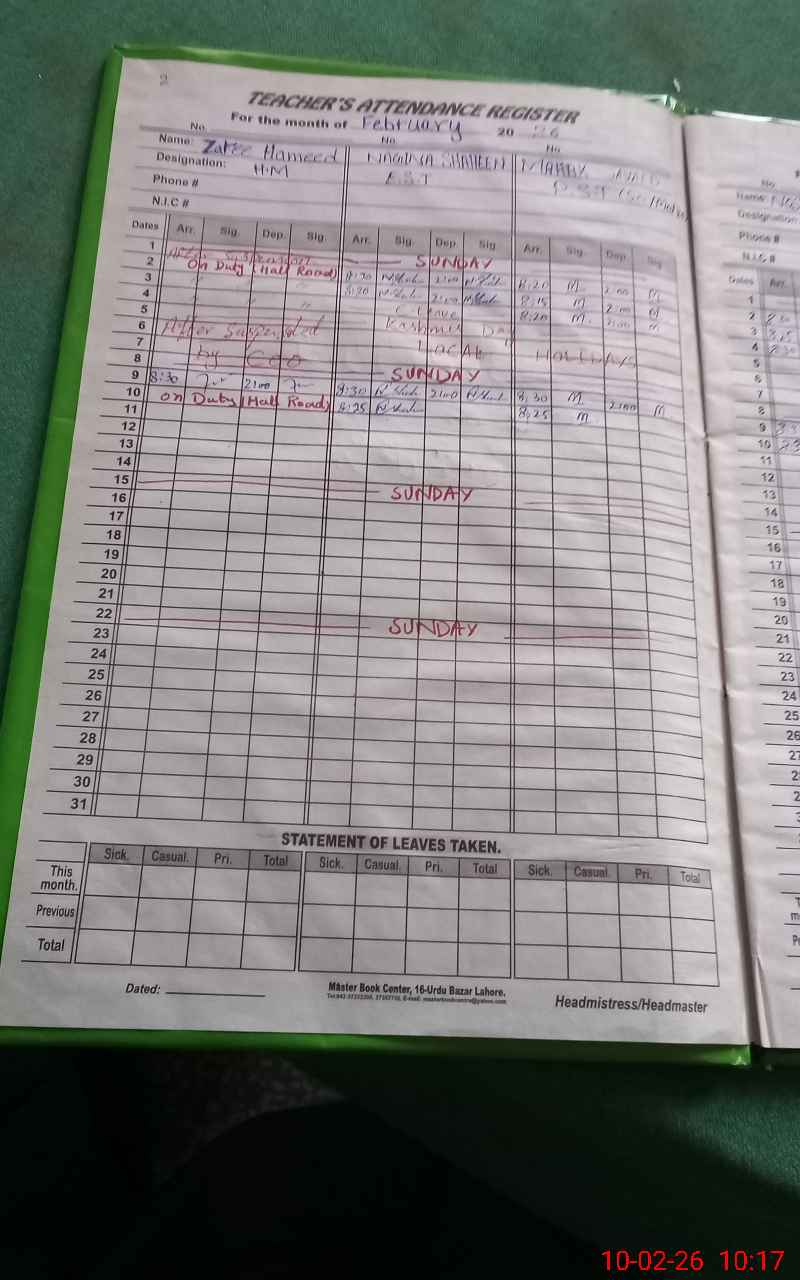 2
TEACHER'S ATTENDANCE REGISTER
For the month of February 20 26
No. No No
Name: Zafee Hameed NAGINA SHAHEEN
Designation: HM E.S.T P.S.T
Phone #
N.I.C #
Dates Arr. Sig. Dep. Sig. Arr. Sig. Dep. Sig Arr. Sig. Dep. Sig
1 SUNDAY
2 On Duty (Hall Road) 8:30 2:00 8:20 M 2:00 M
3 " " " 8:20 2:00 8:15 M 2:00 M
4 C Leave 8:20 M 2:00 M
5 Kashmir Day
6 After Suspended LOCAL HOLIDAYS
7
8 by CEO SUNDAY
9 8:30 2:00 8:30 2:00 8:30 M 2:00 M
10 on Duty (Hall Road) 8:25 8:25 M
11
12
13
14
15 SUNDAY
16
17
18
19
20
21
22 SUNDAY
23
24
25
26
27
28
29
30
31
STATEMENT OF LEAVES TAKEN.
Sick. Casual. Pri. Total Sick. Casual. Pri. Total Sick. Casual. Pri. Total
This month.
Previous
Total
Dated:
Master Book Center, 16-Urdu Bazar Lahore.
Headmistress/Headmaster
No
Name:
Designation:
Phone #
N.I.C #
Dates Arr.
1
2
3
4
5
6
7
8
9
10
11
12
13
14
15
16
17
18
19
20
21
22
23
24
25
26
10-02-26 10:17